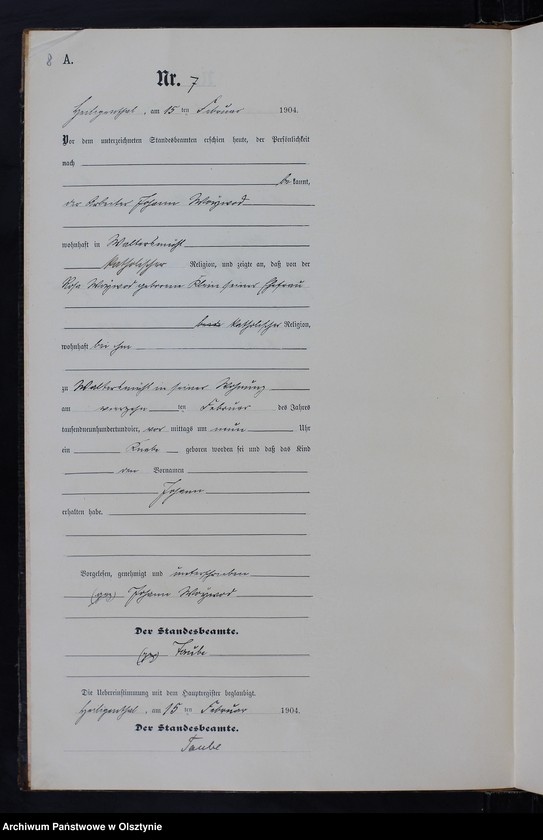 8 A.
Nr. 7
Heiligenthal, am 15 ten Februar 1904.
Vor dem unterzeichneten Standesbeamten erschien heute, der Persönlichkeit
nach
be kannt,
der Arbeiter Johann Woywod
wohnhaft in Walterkmühl
katholischer Religion, und zeigte an, daß von der
Rosa Woywod geborenen Klein seiner Ehefrau
katholischer Religion,
wohnhaft bei ihm
zu Walterkmühl in seiner Wohnung
am vierzehn ten Februar des Jahres
tausendneunhundertundvier, vor mittags um neun Uhr
ein Knabe geboren worden sei und daß das Kind
den Vornamen
Johann
erhalten habe.
Vorgelesen, genehmigt und unterschrieben
(gez) Johann Woywod
Der Standesbeamte.
(gez) Taube
Die Uebereinstimmung mit dem Hauptregister beglaubigt.
Heiligenthal, am 15 ten Februar 1904.
Der Standesbeamte.
Taube
Archiwum Państwowe w Olsztynie